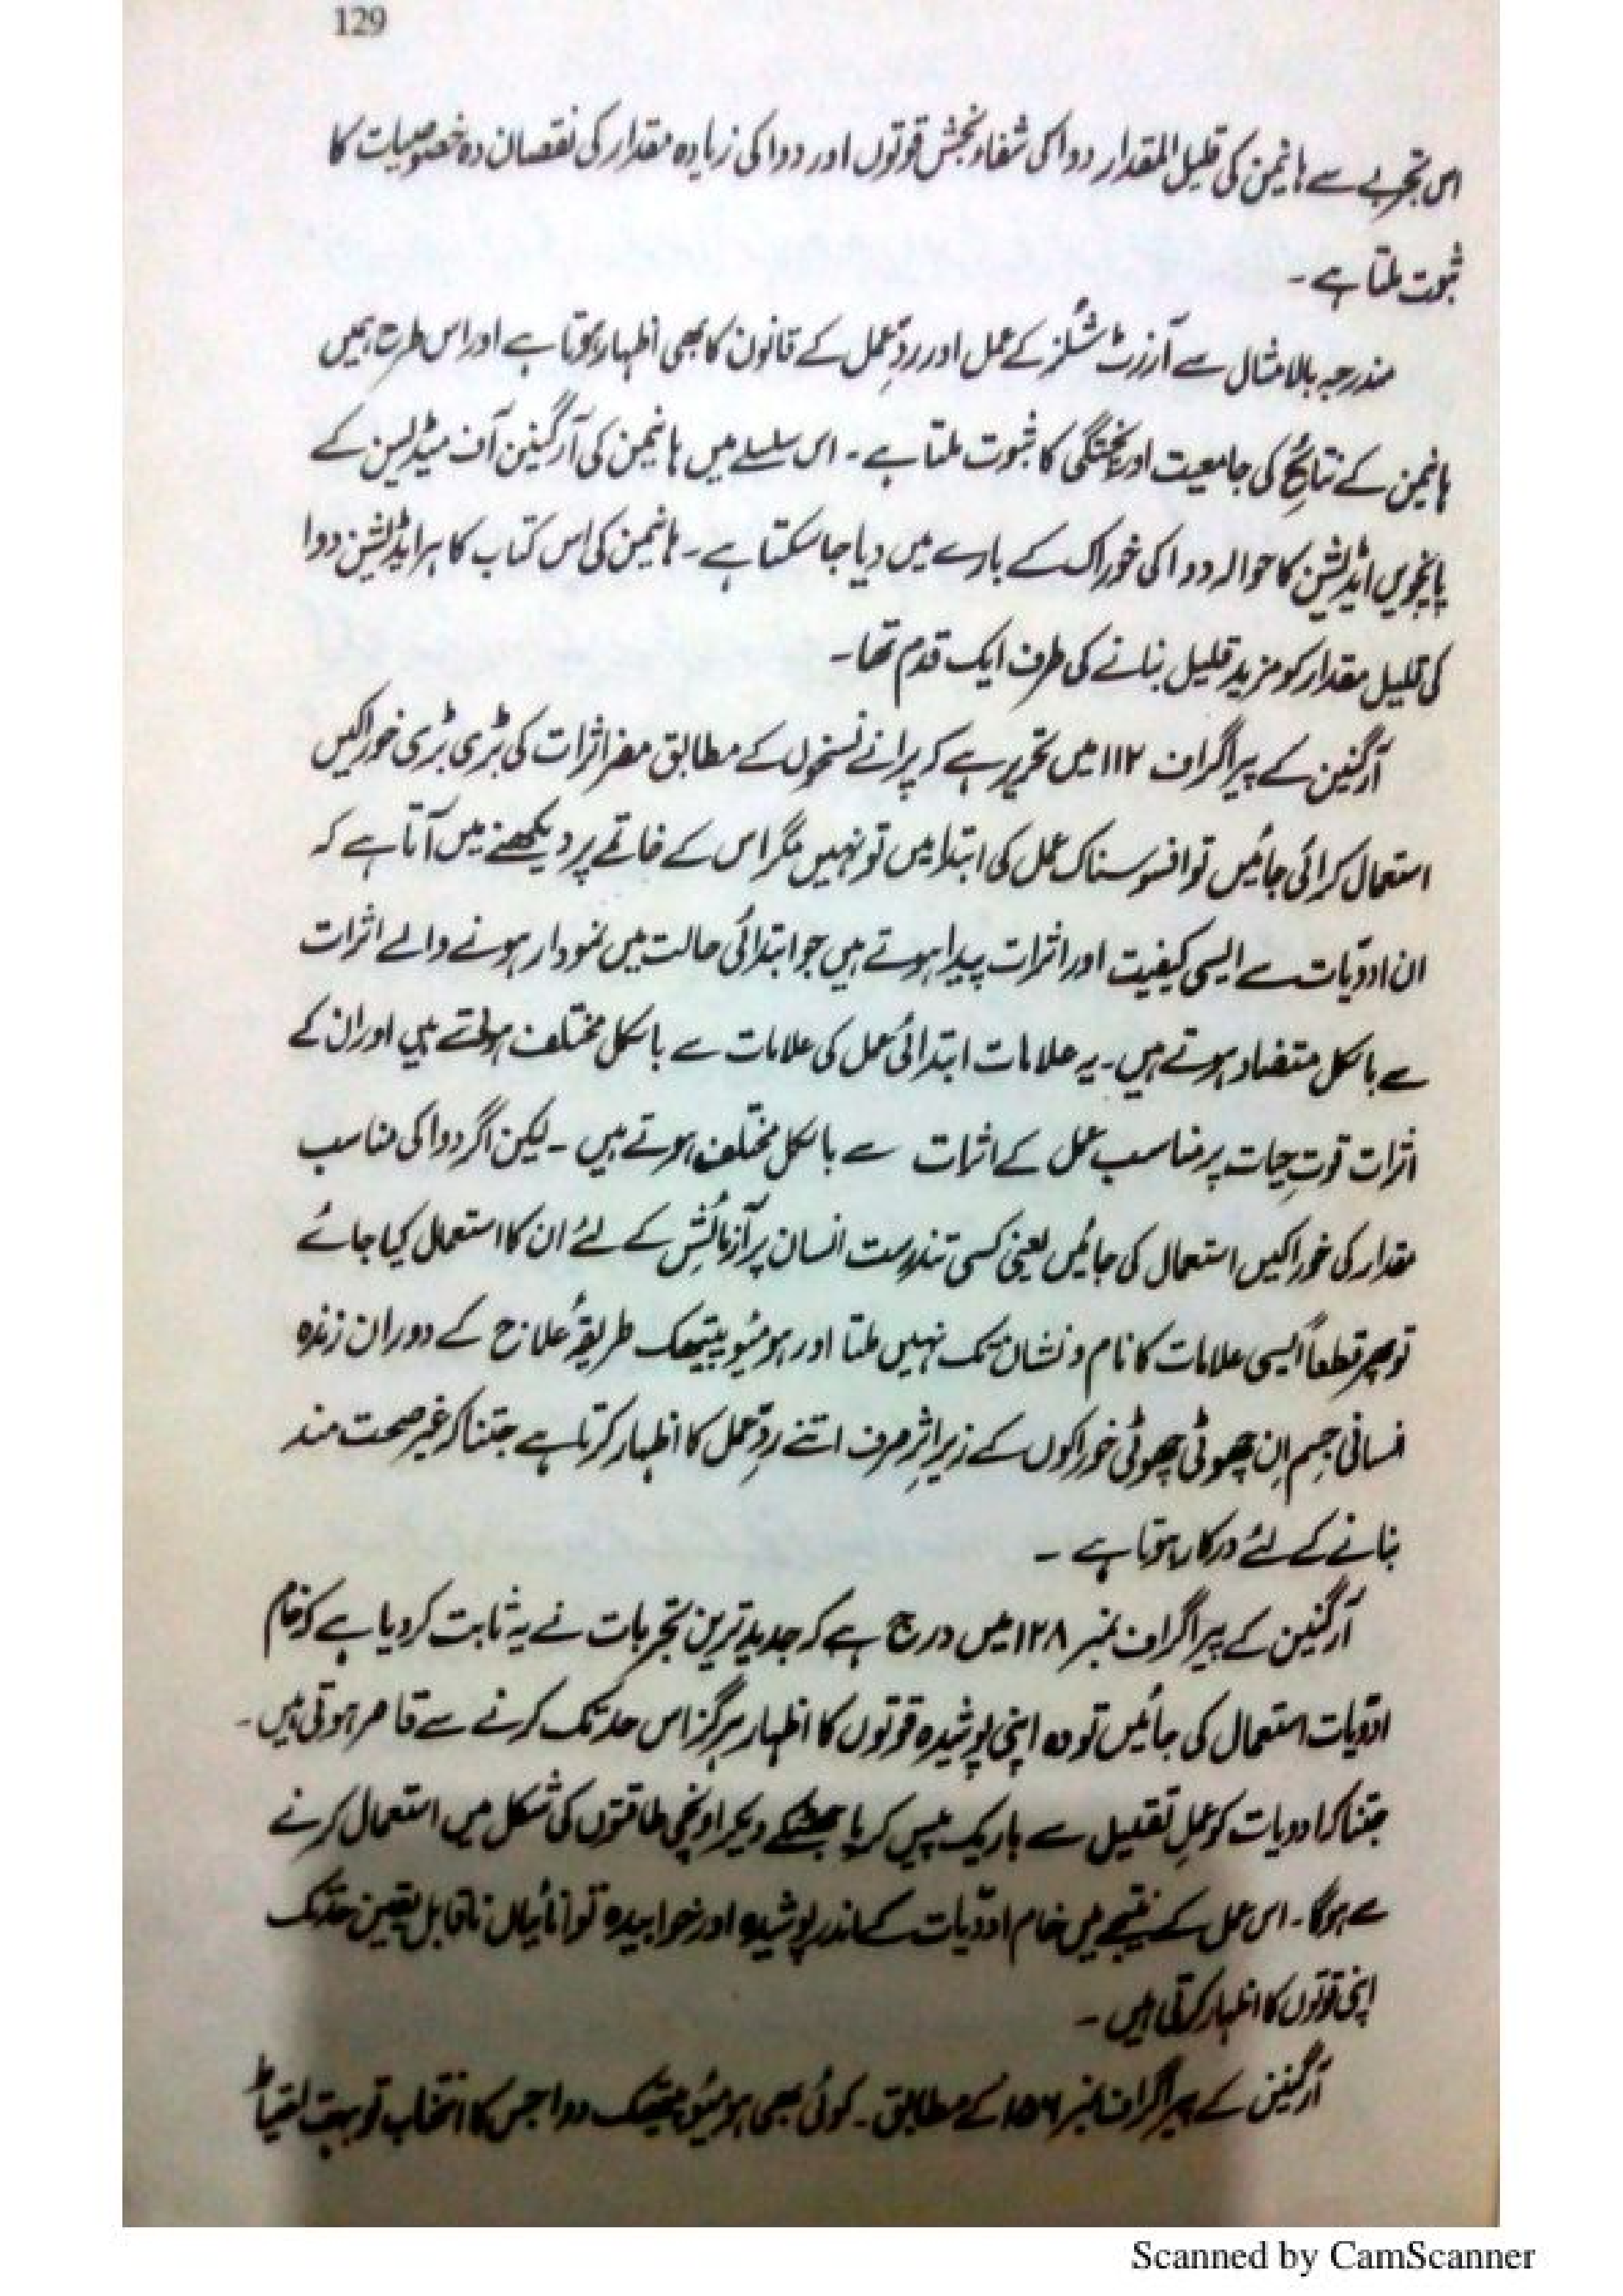 129
اس تجربے سے ہانیمن کی قلیل المقدار دوا کی شفاء بخش قوتوں اور دوا کی زیادہ مقدار کی نقصان دہ خصوصیات کا
ثبوت ملتا ہے۔
مندرجہ بالا مثال سے آرنرٹ شلز کے عمل اور ردِّ عمل کے قانون کا بھی اظہار ہوتا ہے اور اس طرح ہمیں
ہانیمن کے نتائج کی جامعیت اور پختگی کا ثبوت ملتا ہے۔ اس سلسلے میں ہانیمن کی آرگینن آف میڈیسن کے
پانچویں ایڈیشن کا حوالہ دوا کی خوراک کے بارے میں دیا جا سکتا ہے۔ ہانیمن کی اس کتاب کا ہر ایڈیشن دوا
کی قلیل مقدار کو مزید قلیل بنانے کی طرف ایک قدم تھا۔
آرگینن کے پیراگراف ۱۱۲ میں تحریر ہے کہ پرانے نسخوں کے مطابق مضر اثرات کی بڑی بڑی خوراکیں
استعمال کرائی جائیں تو افسوسناک عمل کی ابتدا میں تو نہیں مگر اس کے خاتمے پر دیکھنے میں آتا ہے کہ
ان ادویّات سے ایسی کیفیت اور اثرات پیدا ہوتے ہیں جو ابتدائی حالت میں نمودار ہونے والے اثرات
سے بالکل متضاد ہوتے ہیں۔ یہ علامات ابتدائی عمل کی علامات سے بالکل مختلف ہوتے ہیں اور ان کے
اثرات قوتِ حیات پر مناسب عمل کے اثرات سے بالکل مختلف ہوتے ہیں۔ لیکن اگر دوا کی مناسب
مقدار کی خوراکیں استعمال کی جائیں یعنی کسی تندرست انسان پر آزمائش کے لئے ان کا استعمال کیا جائے
تو پھر قطعاً ایسی علامات کا نام و نشان تک نہیں ملتا اور ہومیوپیتھک طریقۂ علاج کے دوران زندہ
انسانی جسم اِن چھوٹی چھوٹی خوراکوں کے زیرِ اثر صرف اتنے ردِّ عمل کا اظہار کرتا ہے جتنا کہ غیر صحت مند
بنانے کے لئے درکار ہوتا ہے ۔
آرگینن کے پیراگراف نمبر ۱۲۸ میں درج ہے کہ جدید ترین تجربات نے یہ ثابت کر دیا ہے کہ خام
ادویّات استعمال کی جائیں تو وہ اپنی پوشیدہ قوتوں کا اظہار ہرگز اس حد تک کرنے سے قاصر ہوتی ہیں۔
جتنا کہ ادویات کو عملِ تقلیل سے باریک پیس کر یا جھٹکے دیکر اونچی طاقتوں کی شکل میں استعمال کرنے
سے ہوگا۔ اس عمل کے نتیجے میں خام ادویّات کے اندر پوشیدہ اور خوابیدہ توانائیاں ناقابلِ یقین حد تک
اپنی قوتوں کا اظہار کرتی ہیں ۔
آرگینن کے پیراگراف نمبر ۱۵۶ کے مطابق ۔ کوئی بھی ہومیوپیتھک دوا جس کا انتخاب تو بہت
Scanned by CamScanner